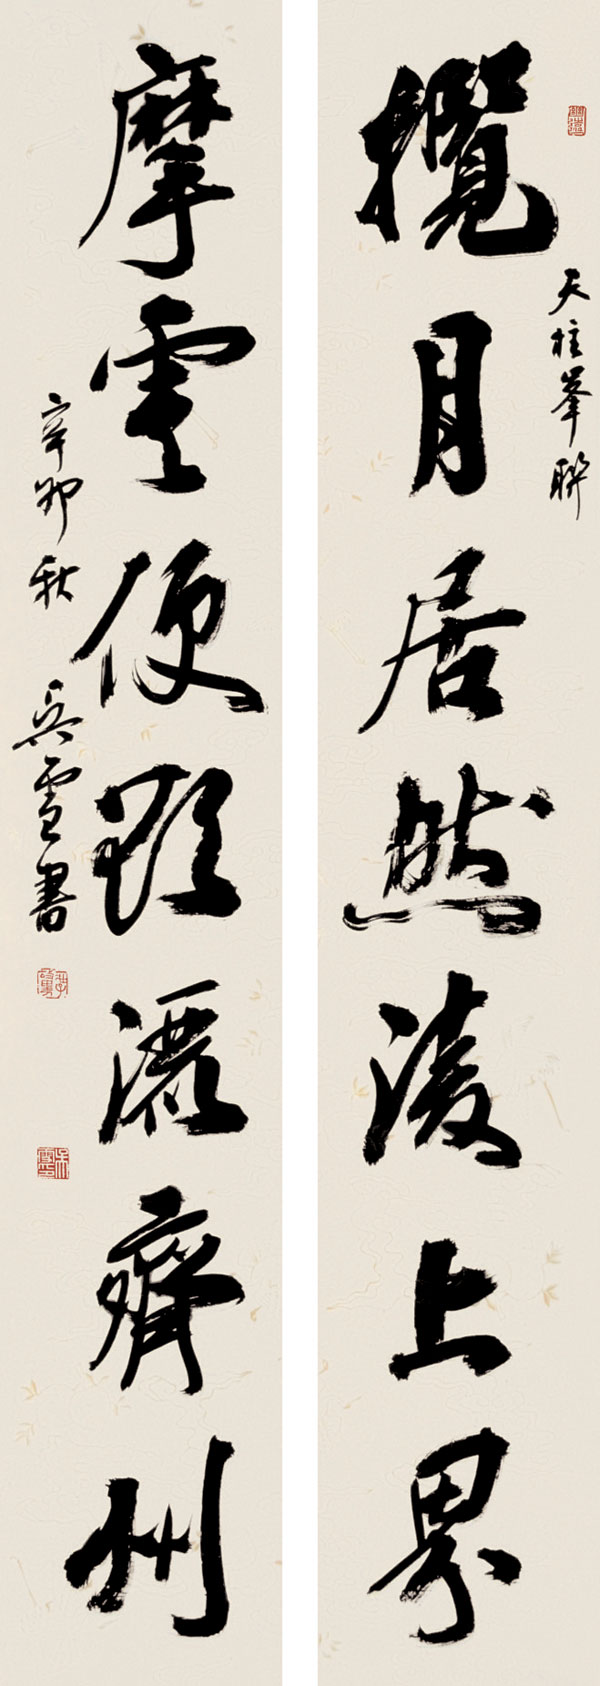 攬月居然凌上界
天柱峯聯
摩雲便灑齊州
辛卯秋 吳雪書